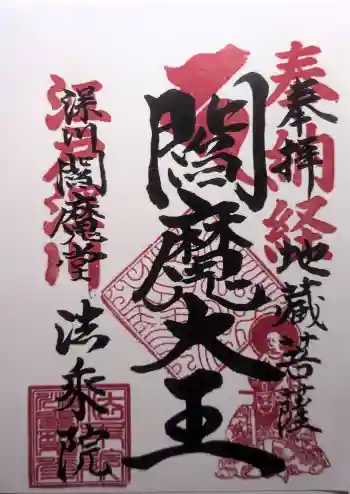 奉拝 地蔵菩薩
奉納経
閻魔大王
深川閻魔堂
法乗院